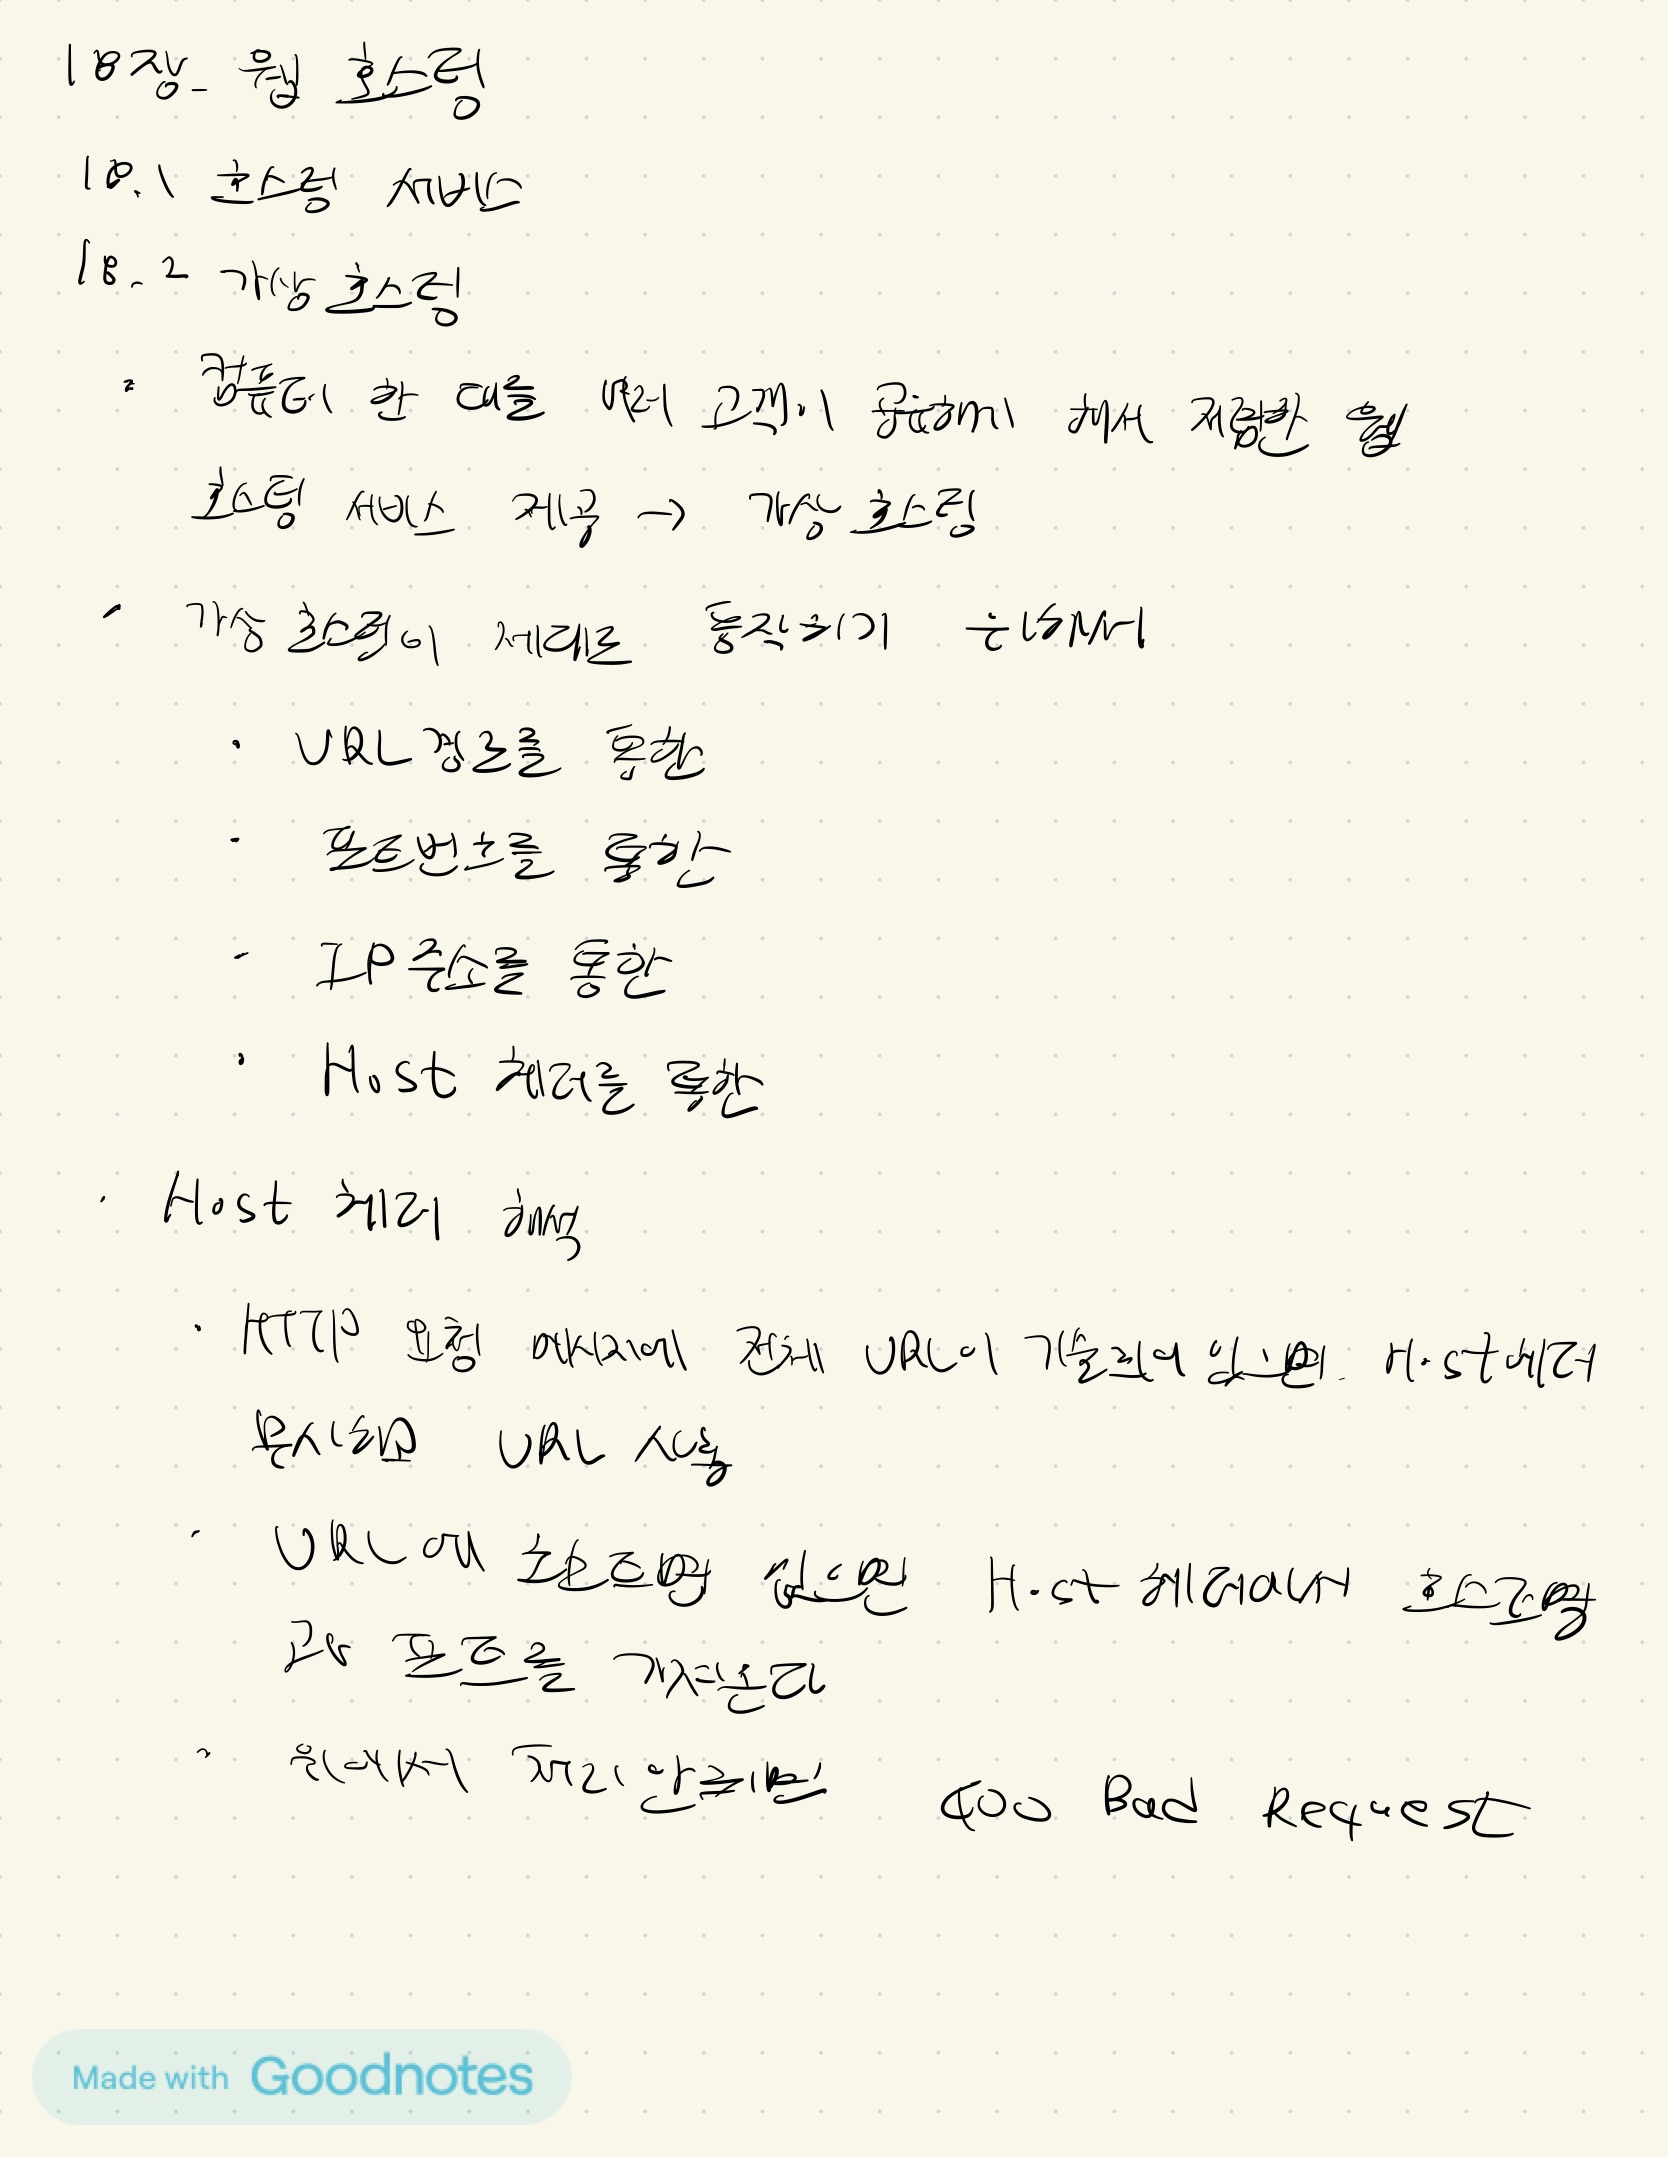 18장_ 웹 호스팅
18.1 호스팅 서비스
18.2 가상 호스팅
· 컴퓨터 한 대를 여러 고객이 공유하게 해서 저렴한 웹
호스팅 서비스 제공 → 가상 호스팅
· 가상 호스팅이 제대로 동작하기 위해서
· URL 경로를 통한
· 포트번호를 통한
- IP 주소를 통한
· Host 헤더를 통한
· Host 헤더 해석
· HTTP 요청 메시지에 전체 URL이 기술되어 있으면. Host헤더
무시하고 URL 사용
· URL에 호스트명 없으면 Host 헤더에서 호스트명
과 포트를 가져온다
· 위에서 처리 안되면 400 Bad Request
Made with Goodnotes